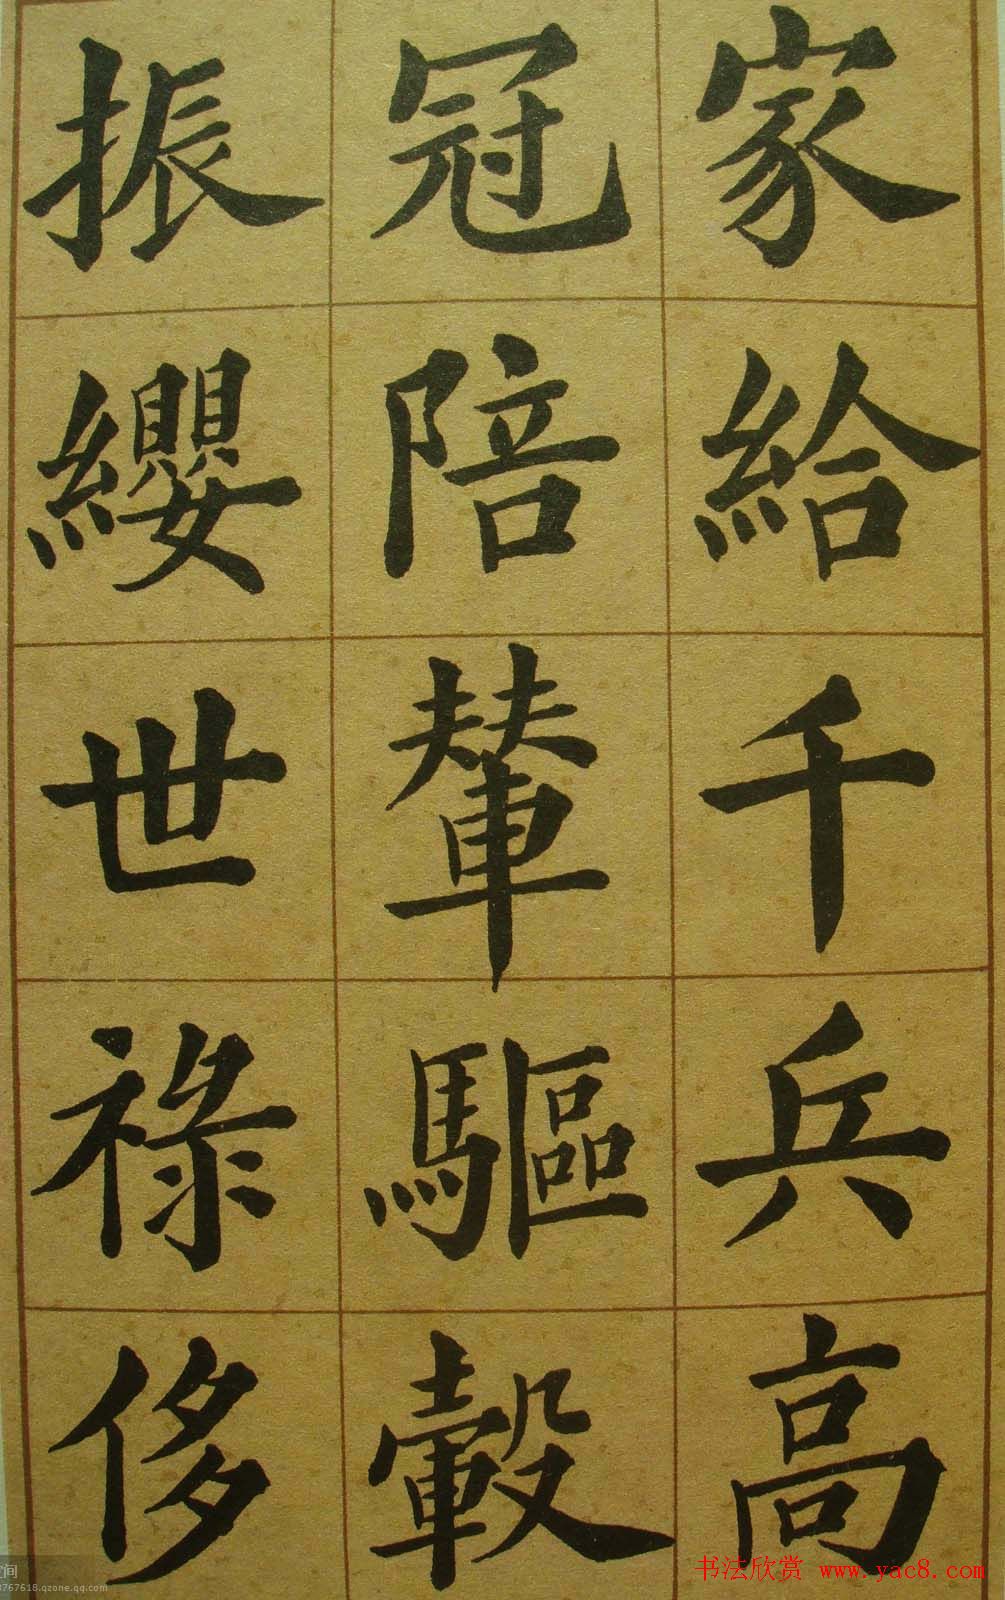 家給千兵高
冠陪輦驅轂
振纓世祿侈
书法欣赏 www.yac8.com
空间
3767618.qzone.qq.com